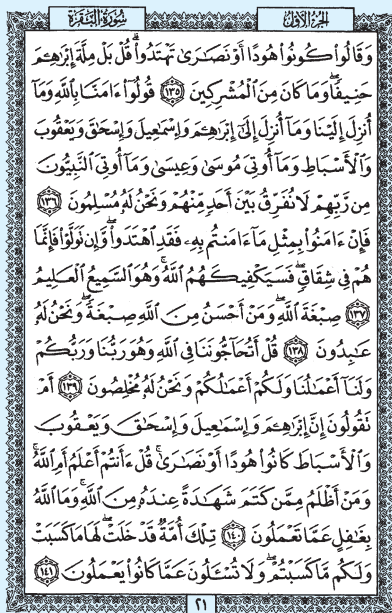 الجزء الأول
سورة البقرة
وَقَالُوا۟ كُونُوا۟ هُودًا أَوْ نَصَٰرَىٰ تَهْتَدُوا۟ ۗ قُلْ بَلْ مِلَّةَ إِبْرَٰهِـۧمَ
حَنِيفًا ۖ وَمَا كَانَ مِنَ ٱلْمُشْرِكِينَ ١٣٥ قُولُوٓا۟ ءَامَنَّا بِٱللَّهِ وَمَآ
أُنزِلَ إِلَيْنَا وَمَآ أُنزِلَ إِلَىٰٓ إِبْرَٰهِـۧمَ وَإِسْمَٰعِيلَ وَإِسْحَٰقَ وَيَعْقُوبَ
وَٱلْأَسْبَاطِ وَمَآ أُوتِىَ مُوسَىٰ وَعِيسَىٰ وَمَآ أُوتِىَ ٱلنَّبِيُّونَ
مِن رَّبِّهِمْ لَا نُفَرِّقُ بَيْنَ أَحَدٍ مِّنْهُمْ وَنَحْنُ لَهُۥ مُسْلِمُونَ ١٣٦
فَإِنْ ءَامَنُوا۟ بِمِثْلِ مَآ ءَامَنتُم بِهِۦ فَقَدِ ٱهْتَدَوا۟ ۖ وَّإِن تَوَلَّوْا۟ فَإِنَّمَا
هُمْ فِى شِقَاقٍ ۖ فَسَيَكْفِيكَهُمُ ٱللَّهُ ۚ وَهُوَ ٱلسَّمِيعُ ٱلْعَلِيمُ
١٣٧ صِبْغَةَ ٱللَّهِ ۖ وَمَنْ أَحْسَنُ مِنَ ٱللَّهِ صِبْغَةً ۖ وَنَحْنُ لَهُۥ
عَٰبِدُونَ ١٣٨ قُلْ أَتُحَآجُّونَنَا فِى ٱللَّهِ وَهُوَ رَبُّنَا وَرَبُّكُمْ
وَلَنَآ أَعْمَٰلُنَا وَلَكُمْ أَعْمَٰلُكُمْ وَنَحْنُ لَهُۥ مُخْلِصُونَ ١٣٩ أَمْ
تَقُولُونَ إِنَّ إِبْرَٰهِـۧمَ وَإِسْمَٰعِيلَ وَإِسْحَٰقَ وَيَعْقُوبَ
وَٱلْأَسْبَاطَ كَانُوا۟ هُودًا أَوْ نَصَٰرَىٰ ۗ قُلْ ءَأَنتُمْ أَعْلَمُ أَمِ ٱللَّهُ ۗ
وَمَنْ أَظْلَمُ مِمَّن كَتَمَ شَهَٰدَةً عِندَهُۥ مِنَ ٱللَّهِ ۗ وَمَا ٱللَّهُ
بِغَٰفِلٍ عَمَّا تَعْمَلُونَ ١٤٠ تِلْكَ أُمَّةٌ قَدْ خَلَتْ ۖ لَهَا مَا كَسَبَتْ
وَلَكُم مَّا كَسَبْتُمْ ۖ وَلَا تُسْـَٔلُونَ عَمَّا كَانُوا۟ يَعْمَلُونَ ١٤١
٢١